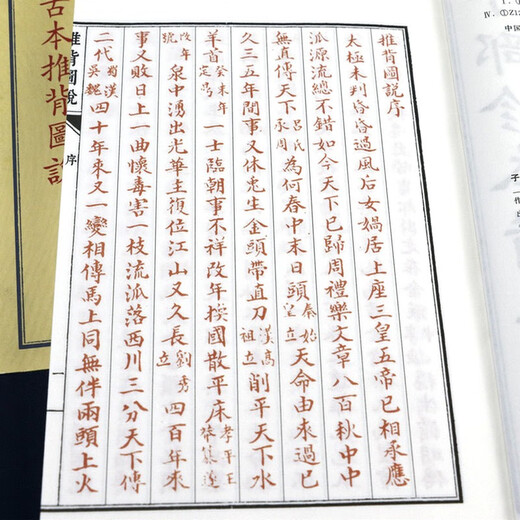 推背圖說序
太極未判昏昏過風后女媧居上座三皇五帝已相承應
泒源流總不錯如今天下已歸周禮樂文章八百秋中中
無直傳天下呂氏承周為何春中末日頭秦始皇立天命由來過已
久三五年間事又休先生金頭帶直刀漢高祖立削平天下水
羊首癸未年一士臨朝事不祥改年換國散平床孝平王莽篡逆
改年號泉中湧出光華主復位江山又久長劉秀立四百年來
事又敗日上一曲懷毒害一枝流泒落西川三分天下傳
二代蜀漢吳魏四十年來又一變相傳馬上同無伴兩頭上火
推背圖說
序
一
古本推背圖說
IV. ①Z1
中国